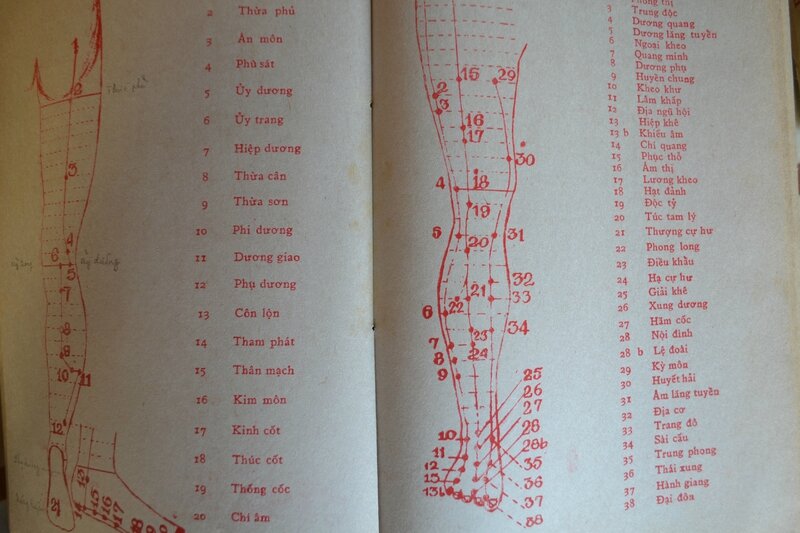 2 Thừa phủ
3 Ân môn
4 Phù sát
5 Ủy dương
6 Ủy trang
7 Hiệp dương
8 Thừa cân
9 Thừa sơn
10 Phi dương
11 Dương giao
12 Phụ dương
13 Côn lộn
14 Tham phát
15 Thân mạch
16 Kim môn
17 Kinh cốt
18 Thúc cốt
19 Thống cốc
20 Chí âm
2
3
4
6
5
7
8
9
10 11
12
21
14
13
15
16
17
18
Phong thị
3 Trung độc
4 Dương quang
5 Dương lăng tuyền
6 Ngoại kheo
7 Quang minh
8 Dương phụ
9 Huyền chung
10 Kheo khư
11 Lâm khấp
12 Địa ngũ hội
13 Hiệp khê
13 b Khiếu âm
14 Chí quang
15 Phục thỏ
16 Âm thị
17 Lương kheo
18 Hạt đảnh
19 Độc tỷ
20 Túc tam lý
21 Thượng cự hư
22 Phong long
23 Điều khẩu
24 Hạ cự hư
25 Giải khê
26 Xung dương
27 Hãm cốc
28 Nội đình
28 b Lệ đoài
29 Kỳ môn
30 Huyết hải
31 Âm lăng tuyền
32 Địa cơ
33 Trang đô
34 Sài cấu
35 Trung phong
36 Thái xung
37 Hành giang
38 Đại đôn
15 29
2
3
16
17
30
4 18
19
5 20 31
32
21 33
22
6
23 34
7
24
8
9
25
26
27
28
10 28b
11 35
12
13 36
13b 37
38